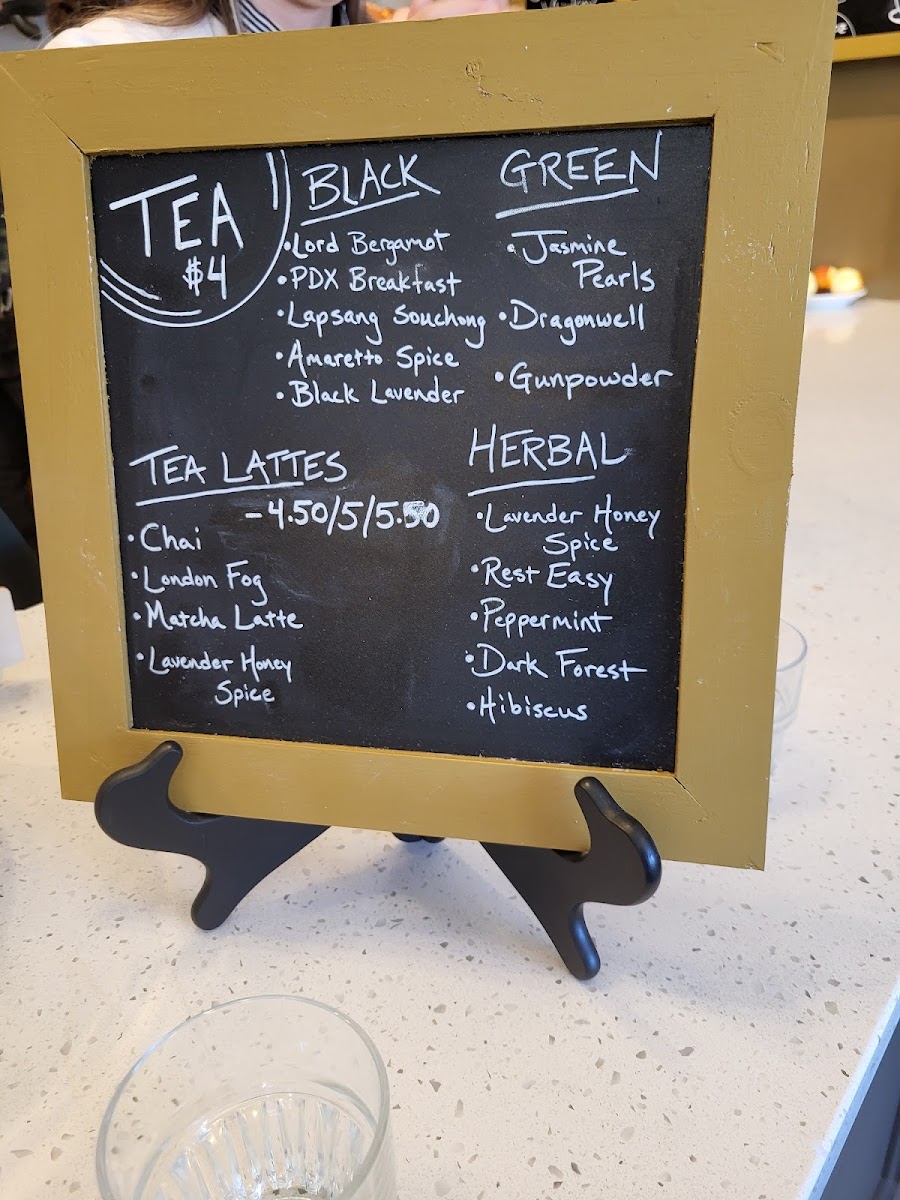 TEA
$4
BLACK
•Lord Bergamot
•PDX Breakfast
•Lapsang Souchong
•Amaretto Spice
•Black Lavender
GREEN
•Jasmine
Pearls
•Dragonwell
•Gunpowder
TEA LATTES
-4.50/5/5.50
•Chai
•London Fog
•Matcha Latte
•Lavender Honey
Spice
HERBAL
•Lavender Honey
Spice
•Rest Easy
•Peppermint
•Dark Forest
•Hibiscus